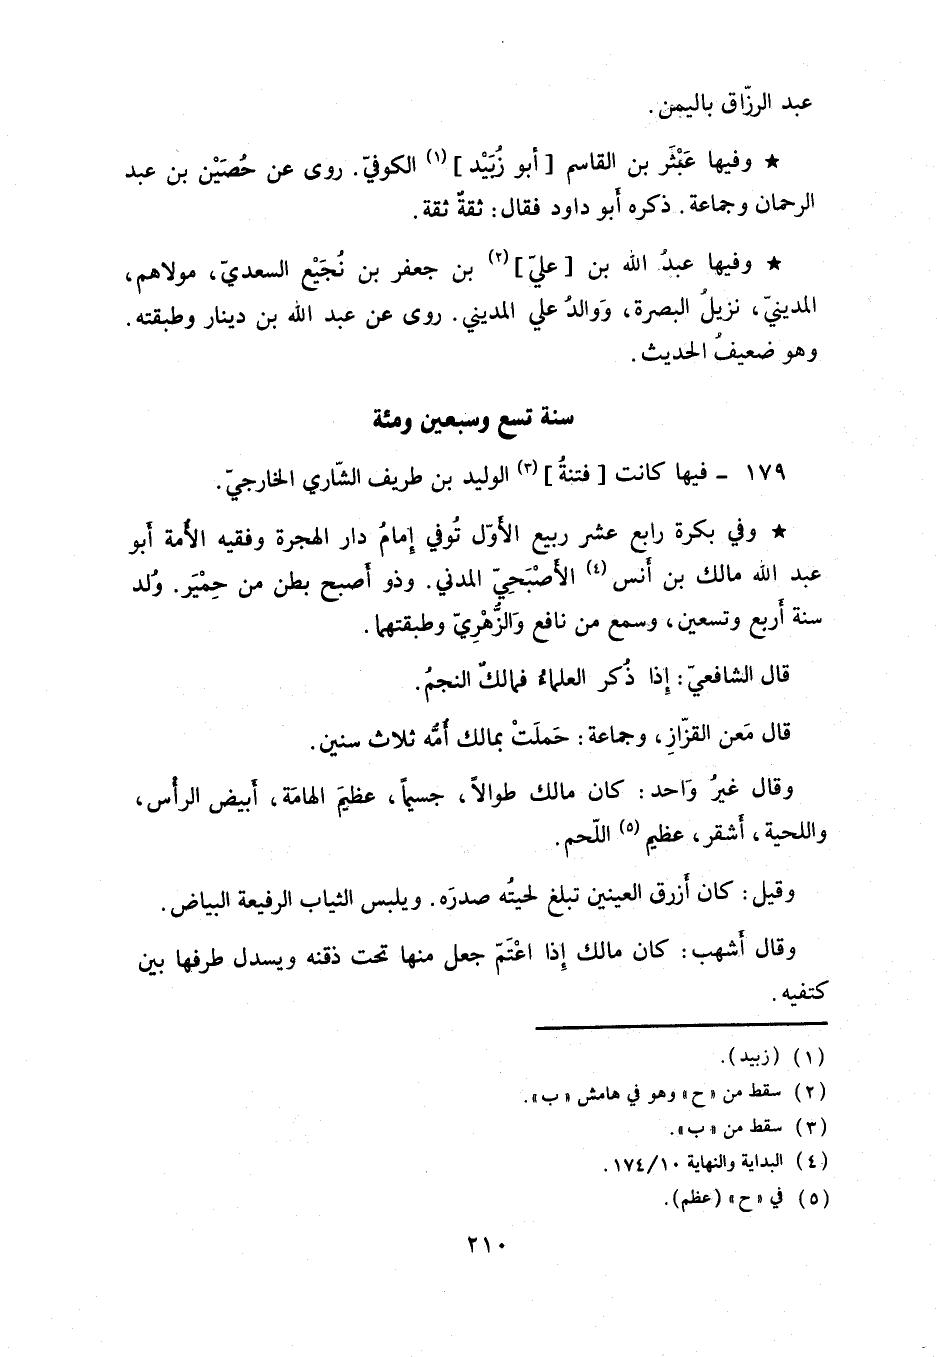 عبد الرزّاق باليمن.
★ وفيها عَبْثَر بن القاسم [أبو زُبَيْد](١) الكوفيّ. روى عن حُصَيْن بن عبد
الرحمان وجماعة. ذكره أَبو داود فقال: ثقةٌ ثقة.
★ وفيها عبدُ الله بن [عليّ](٢) بن جعفر بن نُجَيْع السعديّ، مولاهم،
المدينيّ، نزيلُ البصرة، وَوالدُ علي المديني. روى عن عبد الله بن دينار وطبقته.
وهو ضعيفُ الحديث.
سنة تسع وسبعين ومئة
١٧٩ ـ فيها كانت [فتنةُ](٣) الوليد بن طريف الشّاري الخارجيّ.
★ وفي بكرة رابع عشر ربيع الأَوّل تُوفي إِمامُ دار الهجرة وفقيه الأُمة أَبو
عبد الله مالك بن أَنس(٤) الأَصْبَحِيّ المدني. وذو أَصبح بطن من حِمْيَر. وُلد
سنة أَربع وتسعين، وسمع من نافع وَالزُّهْرِيّ وطبقتهما.
قال الشافعيّ: إِذا ذُكر العلماءُ فمالكٌ النجمُ.
قال مَعن القزّازِ، وجماعة: حَملَتْ بمالك أُمُّه ثلاث سنين.
وقال غيرُ وَاحد: كان مالك طوالاً، جسيماً، عظيمَ الهامَة، أَبيض الرأْس،
واللحية، أَشقر، عظيم(٥) اللّحم.
وقيل: كان أَزرق العينين تبلغ لحيتُه صدرَه. ويلبس الثياب الرفيعة البياض.
وقال أَشهب: كان مالك إِذا اعْتَمّ جعل منها تحت ذقنه ويسدل طرفها بين
كتفيه.
(١) (زبيد).
(٢) سقط من «ح» وهو في هامش «ب».
(٣) سقط من «ب».
(٤) البداية والنهاية ١٧٤/١٠.
(٥) في «ح» (عظم).
٢١٠